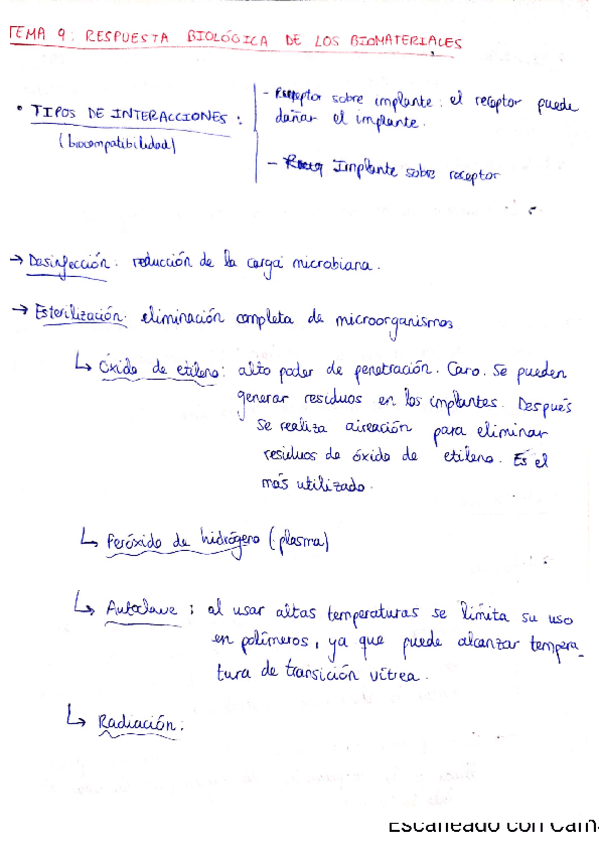 TEMA 9: RESPUESTA BIOLÓGICA DE LOS BIOMATERIALES
• TIPOS DE INTERACCIONES:
(biocompatibilidad)
- Receptor sobre implante: el receptor puede
dañar el implante.
- Implante sobre receptor
→ Desinfección: reducción de la carga microbiana.
→ Esterilización: eliminación completa de microorganismos
↳ Óxido de etileno: alto poder de penetración. Caro. Se pueden
generar residuos en los implantes. Después
se realiza aireación para eliminar
residuos de óxido de etileno. Es el
más utilizado.
↳ Peróxido de hidrógeno (plasma)
↳ Autoclave: al usar altas temperaturas se limita su uso
en polímeros, ya que puede alcanzar tempera-
tura de transición vítrea.
↳ Radiación:
Escaneado con Cam